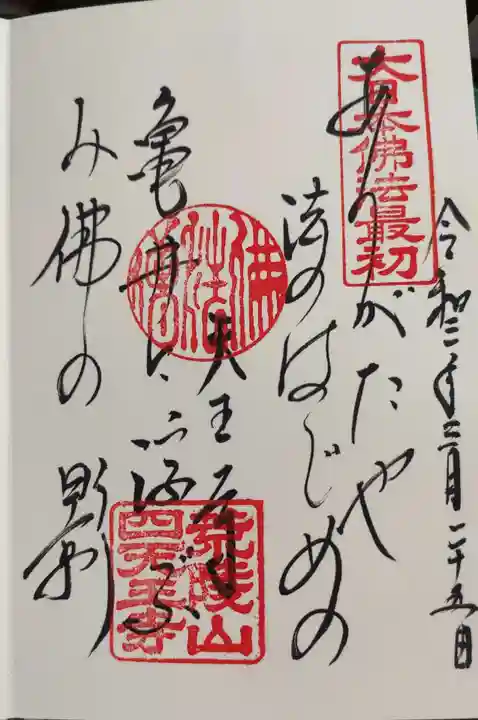 大日本佛法最初
令和三年三月二十五日
ありがたや
法のはじめの
天王寺
亀井に浮ぶ
み佛の影
佛法僧
荒陵山
四天王寺